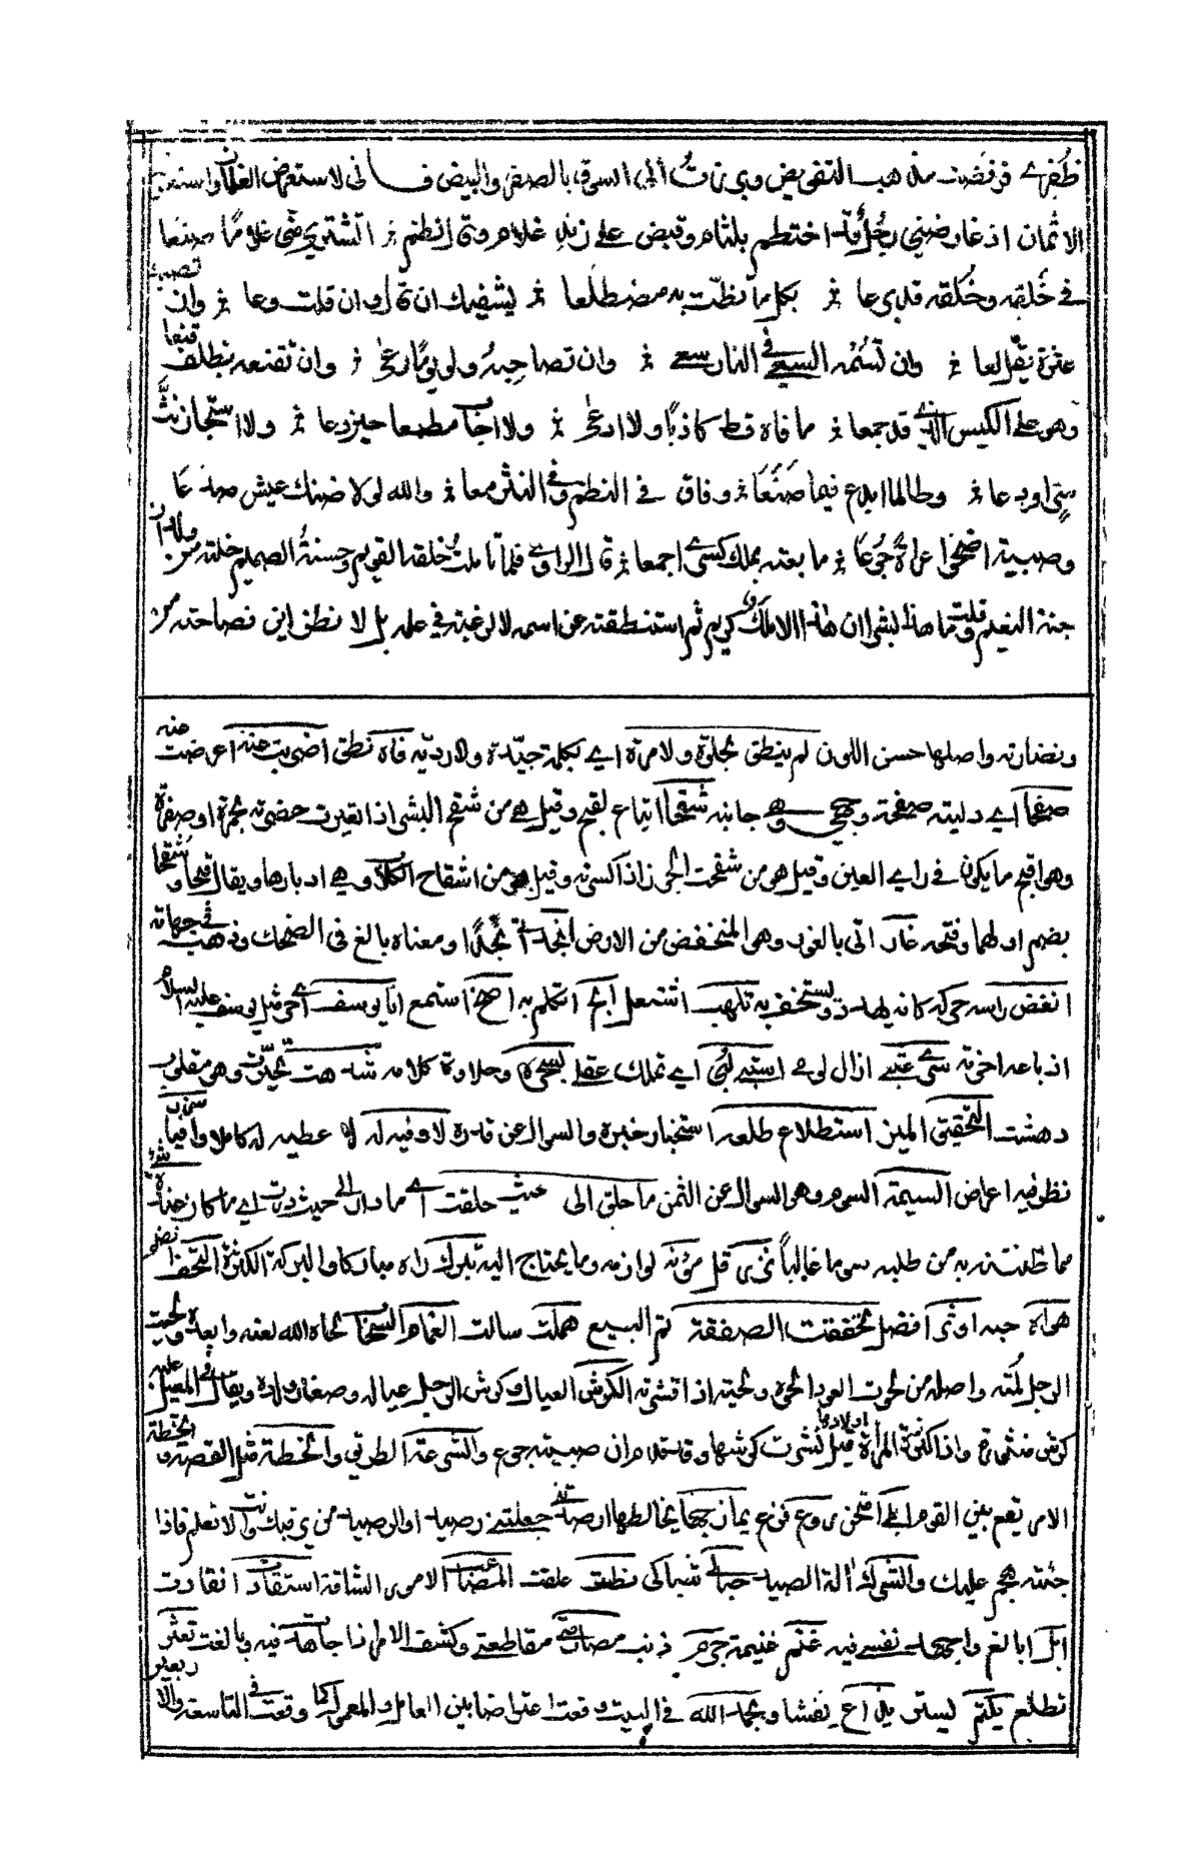 ظفري فرفضت مذهب التفويض وبرزت الى السوق بالصفر والبيض فانى لاستعرض الغلمان واستعرف
الاثمان اذ عارضني رجل قد اختطم بلثام وقبض على زند غلام وقال نظم من يشتري مني غلاما صنعا
في خَلقه وخُلقه قد برعا بكل ما نطت به مضطلعا يشفيك ان قال وان قلت وعا وان تصبك
عثرة يقل لعا وان تسمه السعي في النار سعى وان تصاحبه ولو يوما رعى وان تقنعه بظلف قنعا
وهو على الكيس الذي قد جمعا ما فاه قط كاذبا ولا ادعى ولا اجاب مطمعا حين دعا ولا استجاز نث
سر اودعا وطالما ابدع فيما صنعا وفاق في النظم وفي النثر معا والله لولا ضنك عيش صدعا
وصبية اضحوا عراة جوعا ما بعته بملك كسرى اجمعا قال الراوي فلما تاملت خلقه القويم وحسنه الصميم خلته من ولدان
جنة النعيم وقلت ما هذا بشرا ان هذا الا ملك كريم ثم استنطقته عن اسمه لا لرغبة في علمه بل لا نظر اين فصاحته من
ونضارته واصلها حسن اللون لم ينطق بحلوة ولا مرة اي بكلمة جيدة ولا ردية فاه نطق اضربت عنه اعرضت عنه
صفحا اي وليته صفحة وجهي وهي جانبه شقحا اتباع لقبح وقيل هي من شقح البسر اذا تغيرت خضرته بحمرة او صفرة
وهو اقبح ما يكون في راي العين وقيل هو من شقحت الجوز اذا كسرته وقيل هو من اشقاح الكلاب وهي ادبارها ويقال قبحا وشقحا
بضم اولهما وفتحه غار اتى بالغور وهو المنخفض من الارض انجد اتى نجدا ومعناه بالغ في الضحك وذهب في جهاته
انغض راسه حركه كانه يهدد ويستخف به تلهب اشتعل ابح اتكلم به اصخ استمع انا يوسف اي حر مثل يوسف عليه السلام
اذ باعه اخوته سرى عتبي ازال لومي استبى لبي اي تملك عقلي بسحره وحلاوة كلامه شدهت تحيرت وهو مقلوب
دهشت التحقيق المين استطلاع طلعه استخبار خبره والسوال عن قدره لاوفيه له لاعطيه له كاملا وافيا
نظر فيه اعراض السيمة السوم وهو السوال عن الثمن ما حلق الى حيث حلقت اي ما دار الى حيث درت اي ما كان
مما ظننته به من طلبه سوما غاليا نزر قل مؤنه لوازمه وما يحتاج اليه تبرك راه مباركا والبركة الكثرة التحف
هواه حبه اوثر افضل تحققت الصفقة تم البيع هملت سالت الغمام السحاب لحاه الله لعنه وابعده ولحيت
الرجل لمته واصله من لحوت العود الحوه ولحيته اذا قشرته الكرش العيال وكرش الرجل عياله وصغار ولده ويقال في المعيل عليه
كرش منثورة واذا كثرت المرأة اولادها قيل نثرت كرشها وقد تقدم ان صبيته جوع والشرعة الطريق والخطة مثل القصة والخطة
الامر يقع بين القوم ابلى امتحن روع فزع يمازجها يخالطها ارصدتني جعلتني رصيدا والرصيد من يرقبك وانت لا تعلم فاذا
جئته هجم عليك والشرك الة الصيد حبالي شباكي نيطت علقت المصاعب الامور الشاقة استقادت انقادت
ابل ابالغ واجهد نفسي فيه غنم غنيمة جرم ذنب مصارحتي مقاطعتي وكشف الامر اذا جاهدت فيه وبالغت تعثر
تطلع يكتم يستر يذاع يفشا وبحمد الله في البيت وقعت اعتراضا بين العامل والمعمول كما وقعت في التاسعة والاربعين